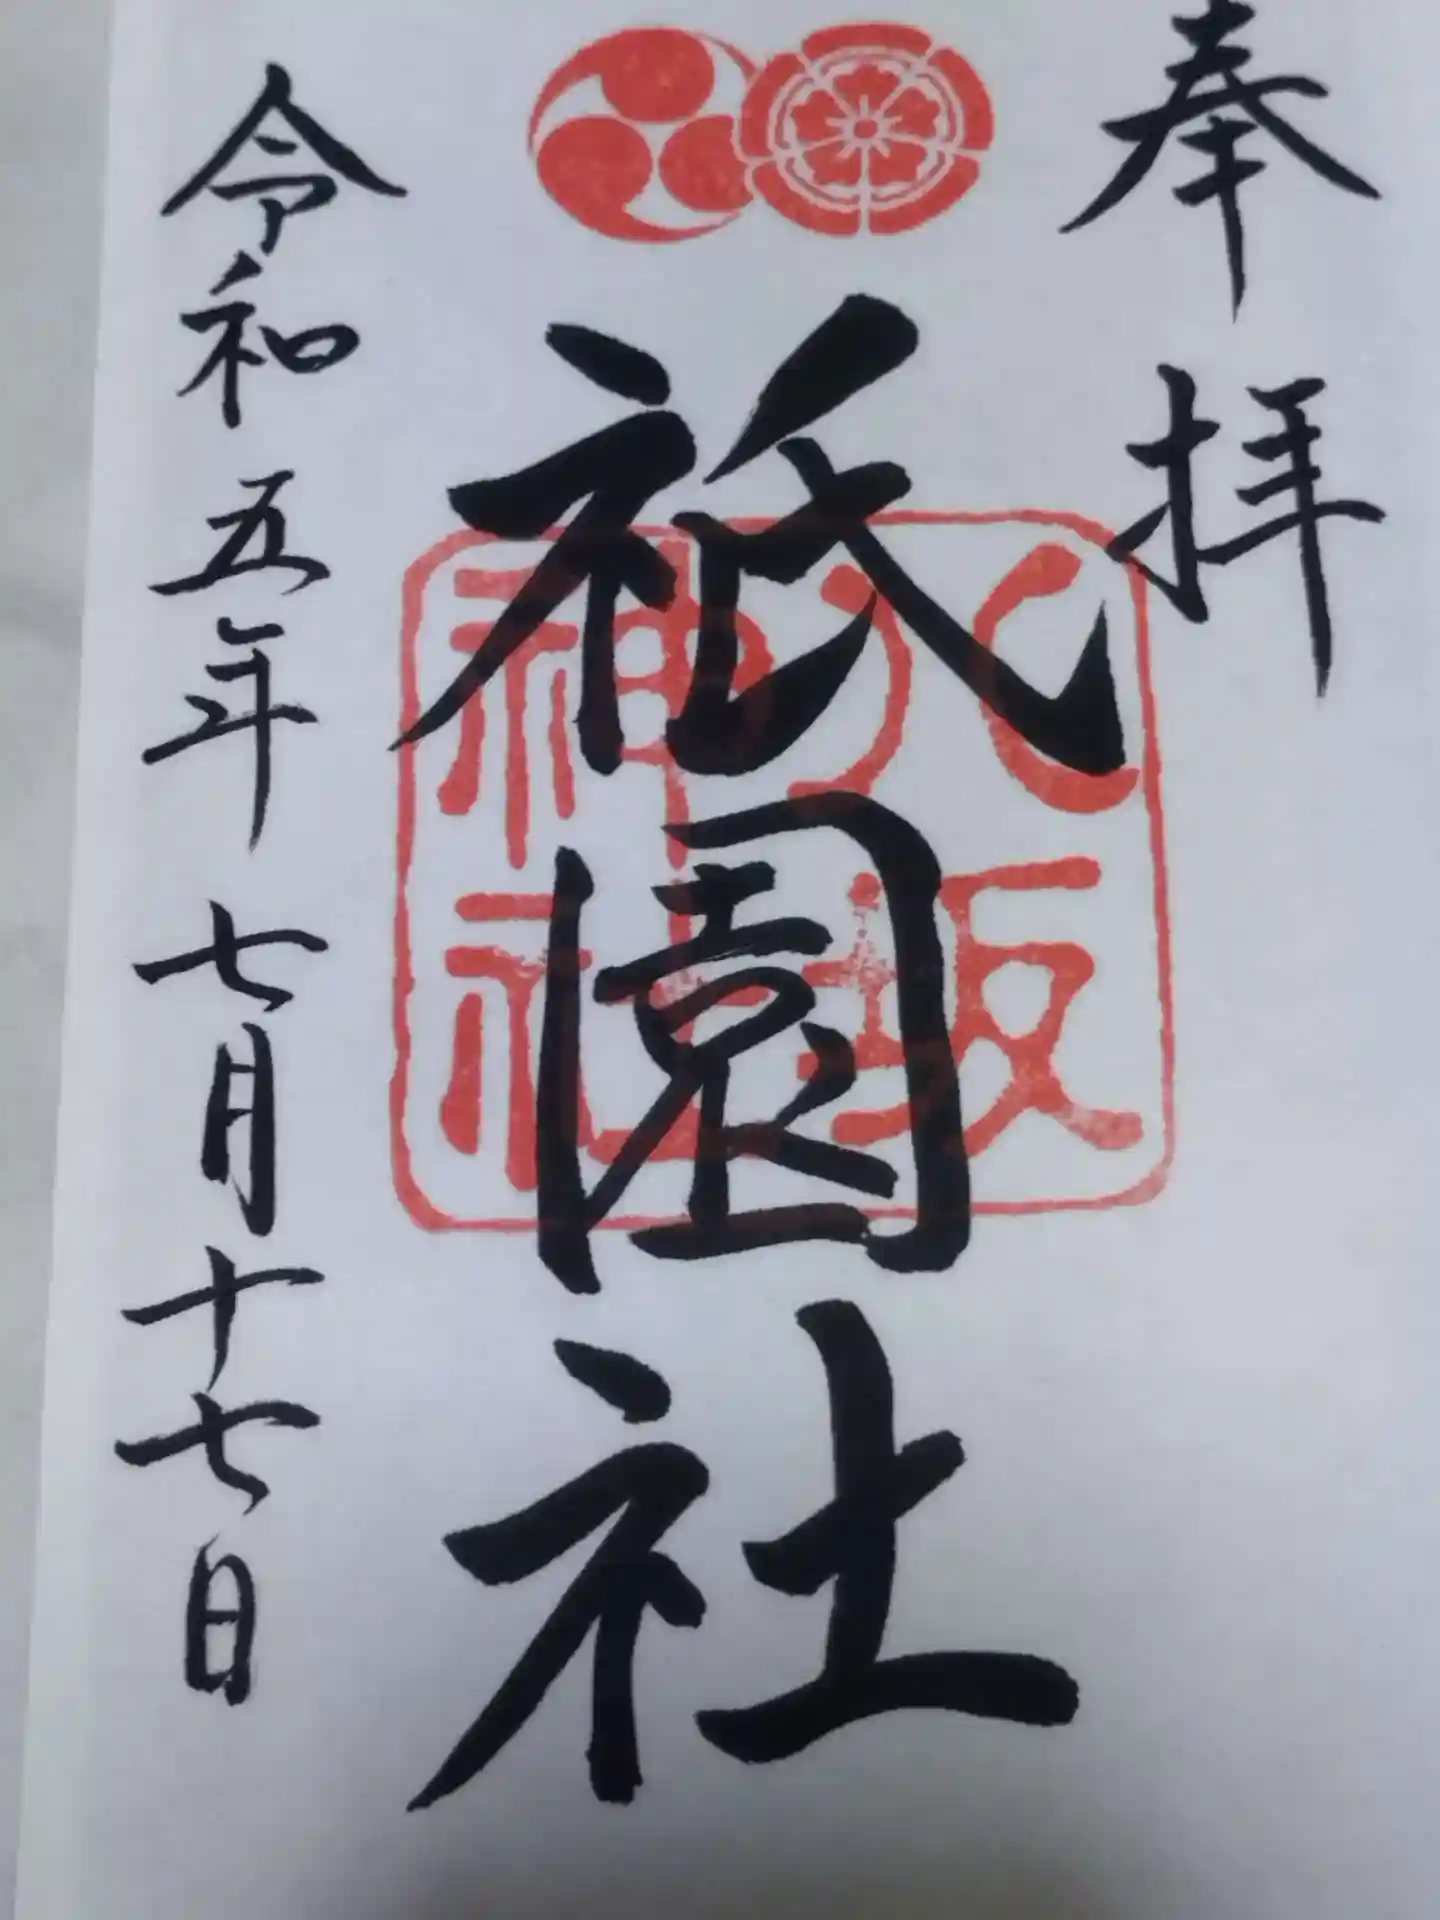 奉拝
祇園社
八坂
神社
令和五年七月十七日